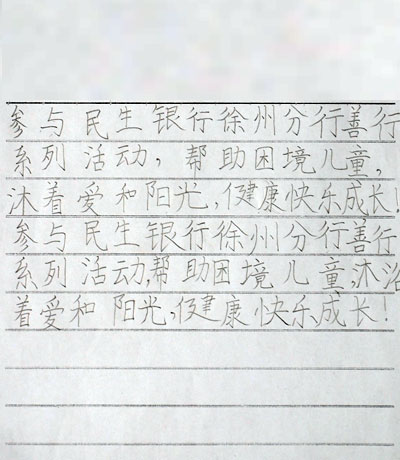 参与民生银行徐州分行善行
系列活动，帮助困境儿童，
沐着爱和阳光，健康快乐成长！
参与民生银行徐州分行善行
系列活动，帮助困境儿童，沐浴
着爱和阳光，健康快乐成长！